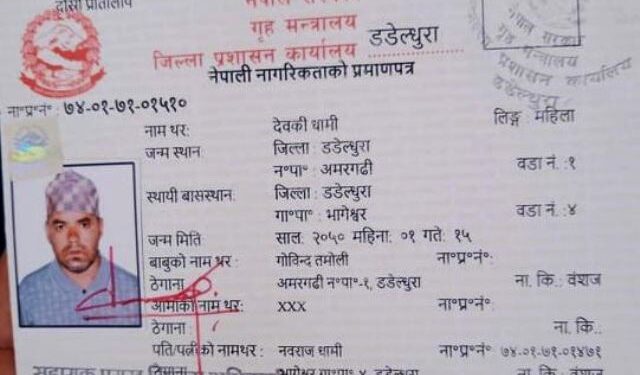 दोस्रो प्रतिलिपि
नेपाल सरकार
गृह मन्त्रालय
जिल्ला प्रशासन कार्यालय डडेल्धुरा
नेपाली नागरिकताको प्रमाणपत्र
नेपाल सरकार
गृह मन्त्रालय
प्रशासन कार्यालय
डडेल्धुरा
ना॰प्र॰नं॰: ७४-०१-७१-०१५१०
नाम थर: देवकी धामी लिङ्ग : महिला
जन्म स्थान: जिल्ला : डडेल्धुरा
न॰पा॰ : अमरगढी वडा नं. :१
स्थायी बासस्थान: जिल्ला : डडेल्धुरा
गा॰पा॰ : भागेश्वर वडा नं. :४
जन्म मिति साल: २०५० महिना: ०१ गते: १५
बाबुको नाम थर : गोविन्द तमोली ना॰प्र॰नं॰:
ठेगाना अमरगढी न॰पा॰-१, डडेल्धुरा ना. कि. : वंशज
आमाको नाम थर: xxx ना॰प्र॰नं॰:
ठेगाना: ना. कि.:
पति/पत्नीको नामथर: नवराज धामी ना॰प्र॰नं॰ ७४-०१-७१-०१४७१
ठेगाना: भागेश्वर गा॰पा॰ ४, डडेल्धुरा ना. कि.: वंशज